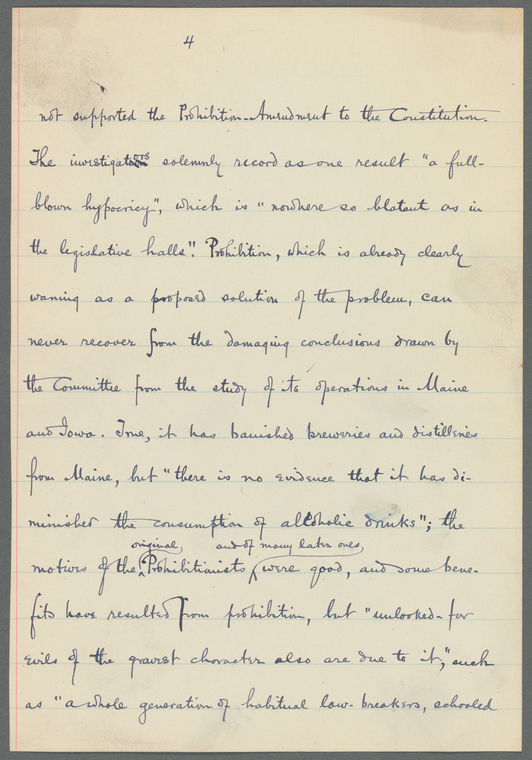 4
not supported the Prohibition-Amendment to the Constitution.
The investigators solemnly record as one result "a full-
blown hypocricy", which is "nowhere so blatant as in
the legislative halls"! Prohibition, which is already clearly
waning as a proposed solution of the problem, can
never recover from the damaging conclusions drawn by
the Committee from the study of its operations in Maine
and Iowa. True, it has banished breweries and distilleries
from Maine, but "there is no evidence that it has di-
minished the consumption of alcoholic drinks"; the
original and of many later ones,
motives of the Prohibitionists were good, and some bene-
fits have resulted from prohibition, but "unlooked-for
evils of the gravest character also are due to it," such
as "a whole generation of habitual law-breakers, schooled